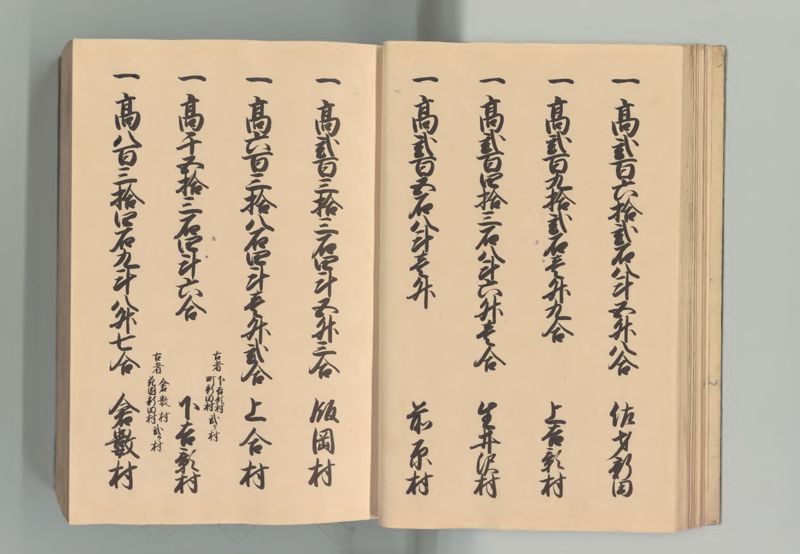 一高弐百六拾弐石八斗五升八合　佐才新田
一高弐百九拾弐石壱升九合　上吉影村
一高弐百四拾三石八斗六升壱合　生井沢村
一高弐百五石八斗壱升　前原村
一高弐百三拾三石四斗五升三合　飯岡村
一高六百三拾八石四斗壱升弐合　上合村
古者　下吉影村
町新田村　弐ヶ村
一高千五拾三石四斗六合　下吉影村
古者　倉数村
新田村　弐ヶ村
一高八百三拾四石九斗八升七合　倉數村